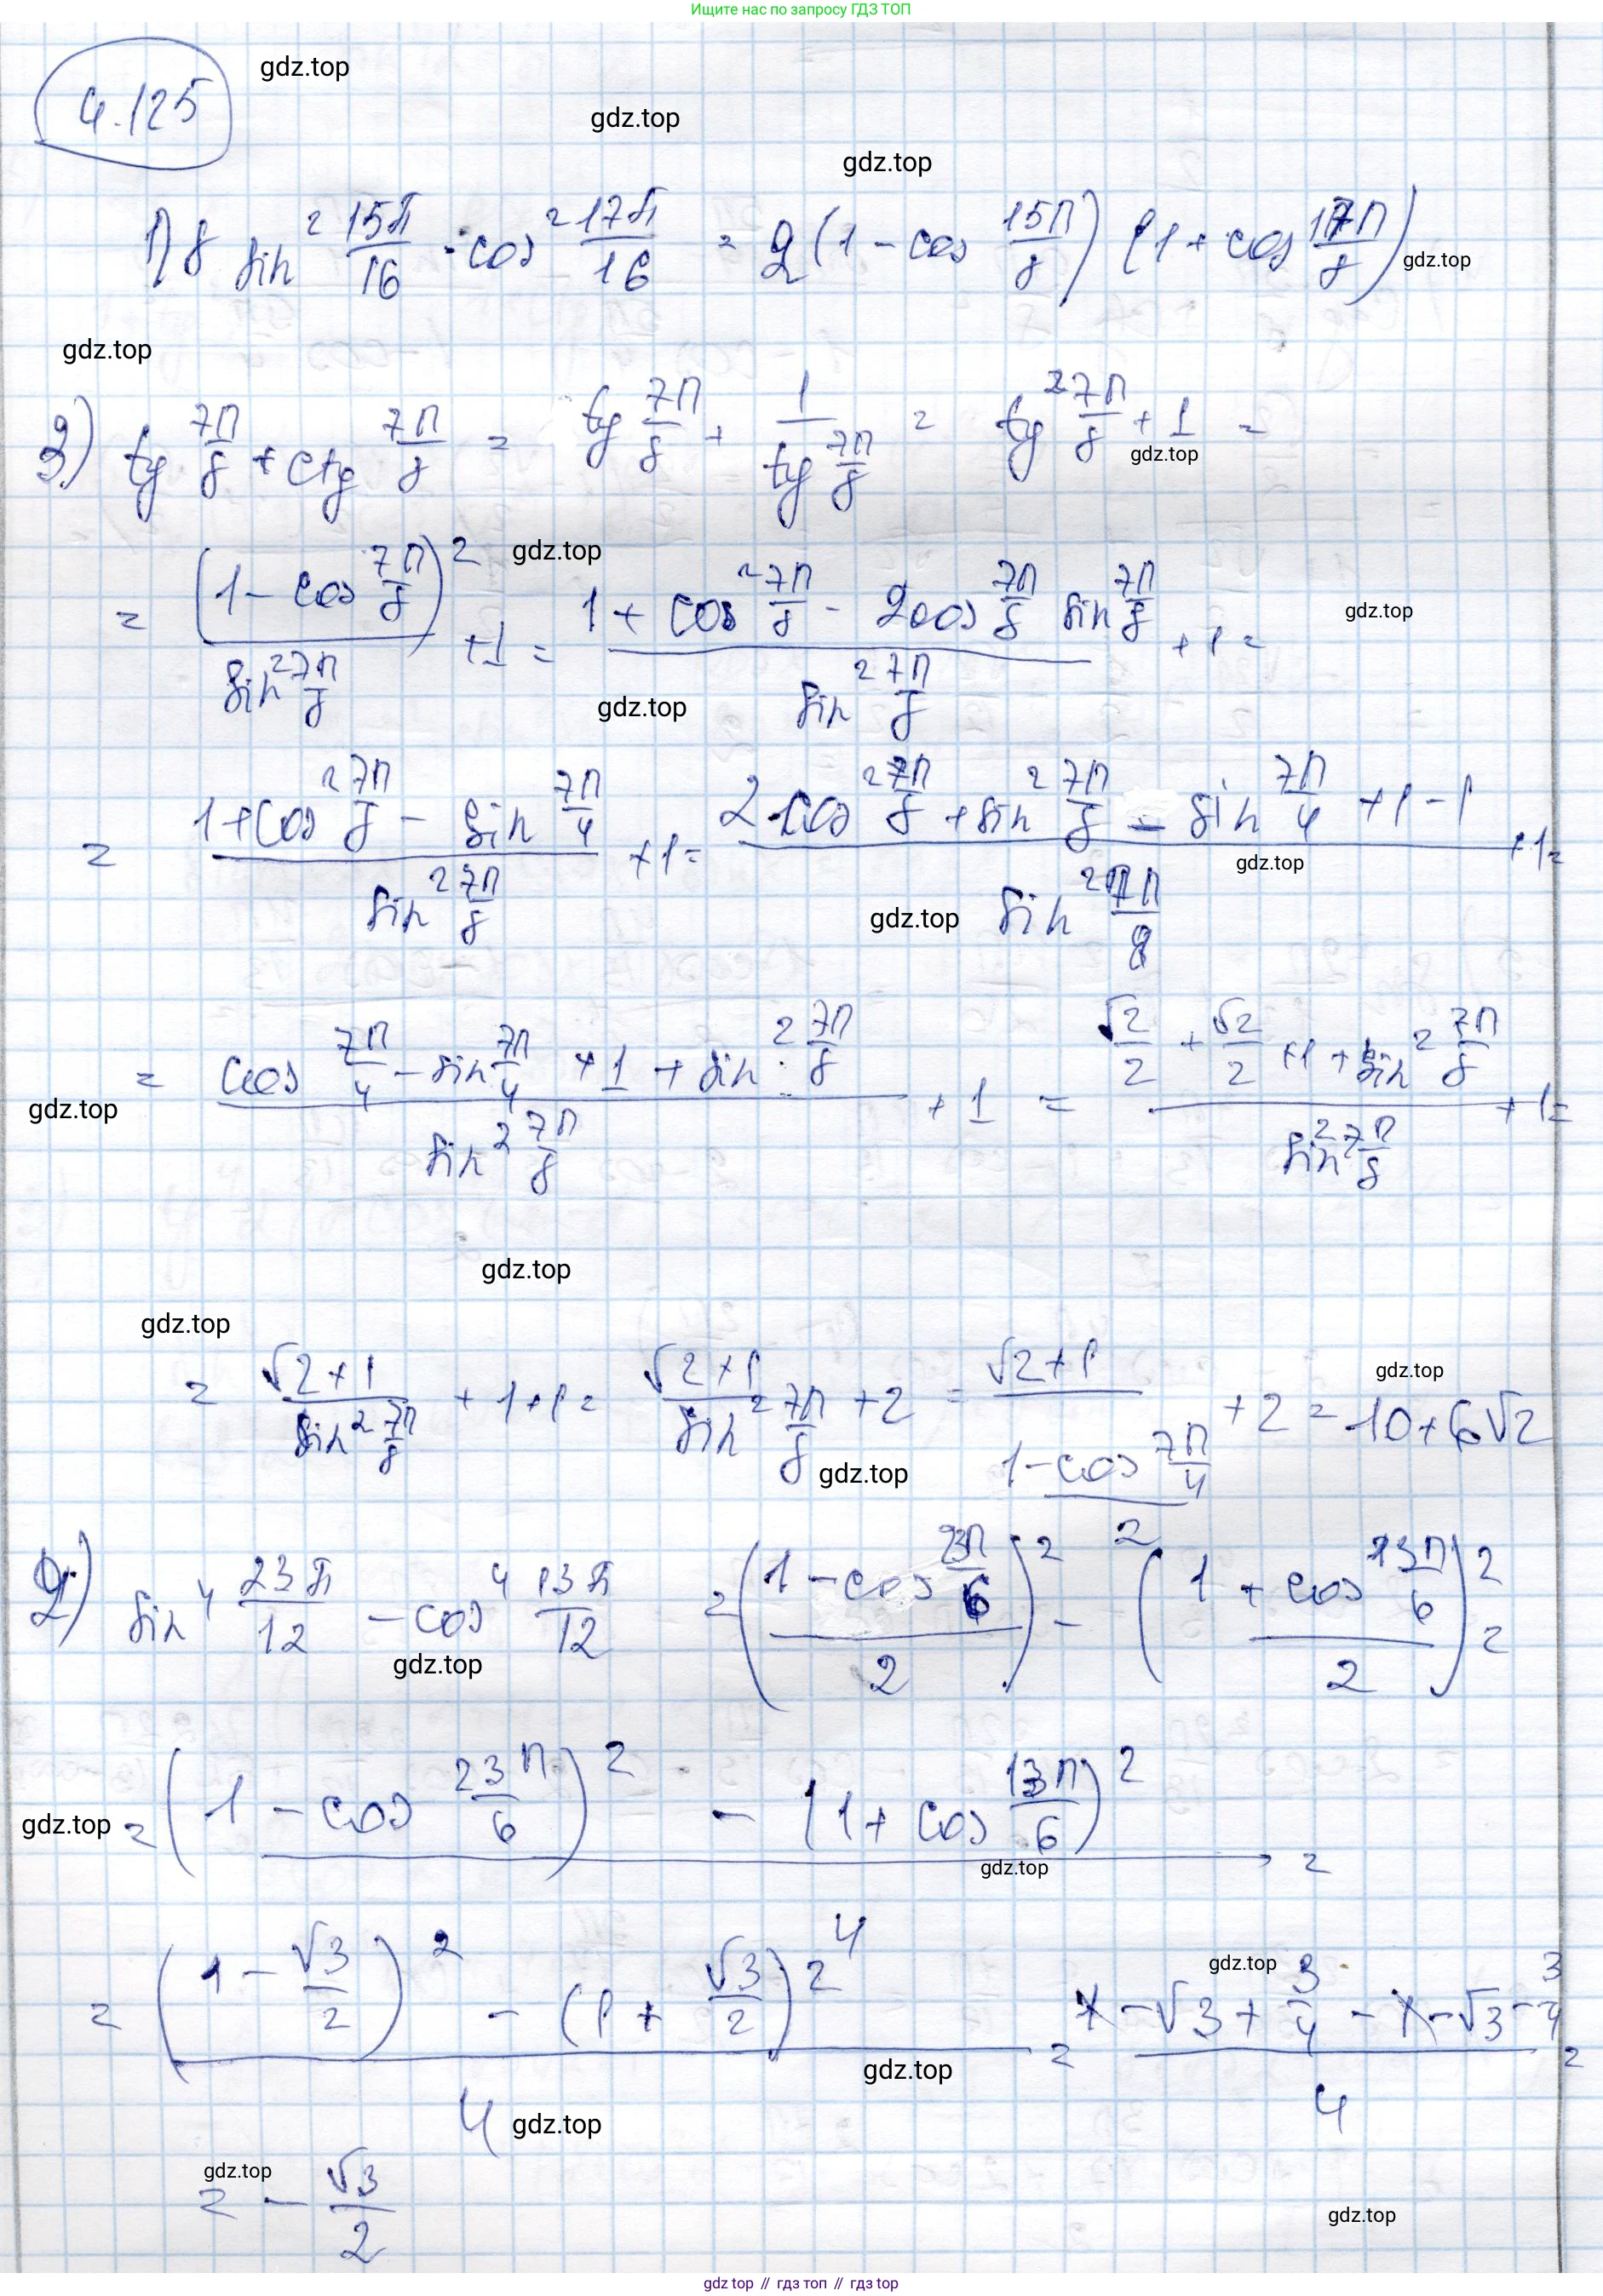 Ищите нас по запросу ГДЗ ТОП
4.125
gdz.top
gdz.top
gdz.top
1) 8 sin² 15π/16 · cos² 17π/16 = 2(1 - cos 15π/8)(1 + cos 17π/8)
gdz.top
gdz.top
3) tg 7π/8 + ctg 7π/8 = tg 7π/8 + 1/(tg 7π/8) = tg² 7π/8 + 1 =
gdz.top
= (1 - cos 7π/8)²/(sin² 7π/8) + 1 = (1 + cos² 7π/8 - 2cos 7π/8 sin 7π/8)/(sin² 7π/8) + 1 =
gdz.top
gdz.top
gdz.top
= (1 + cos² 7π/8 - sin 7π/4)/(sin² 7π/8) + 1 = (2cos² 7π/8 + sin² 7π/8 - sin 7π/4 + 1 - 1)/(sin² 7π/8) + 1 =
gdz.top
gdz.top
= (cos 7π/4 - sin 7π/4 + 1 + sin² 7π/8)/(sin² 7π/8) + 1 = (√2/2 + √2/2 + 1 + sin² 7π/8)/(sin² 7π/8) + 1 =
gdz.top
gdz.top
gdz.top
= (√2 + 1)/(sin² 7π/8) + 1 + 1 = (√2 + 1)/(sin² 7π/8) + 2 = (√2 + 1)/((1 - cos 7π/4)/2) + 2 = 10 + 6√2
gdz.top
gdz.top
2) sin⁴ 23π/12 - cos⁴ 13π/12 = ((1 - cos 23π/6)/2)² - ((1 + cos 13π/6)/2)² =
gdz.top
= ((1 - cos 23π/6)² - (1 + cos 13π/6)²)/4 =
gdz.top
gdz.top
= ((1 - √3/2)² - (1 + √3/2)²)/4 = (1 - √3 + 3/4 - 1 - √3 - 3/4)/4 =
gdz.top
gdz.top
gdz.top
= - √3/2
gdz.top
gdz.top
gdz top // гдз топ // gdz top